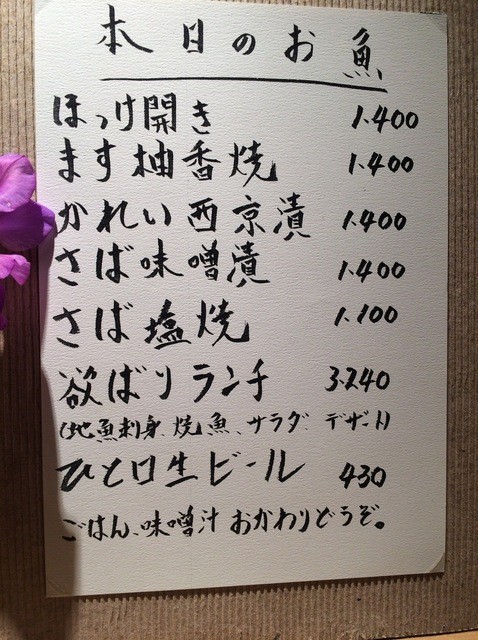 本日のお魚
ほっけ開き 1.400
ます柚香焼 1.400
かれい西京漬 1.400
さば味噌漬 1.400
さば塩焼 1.100
欲ばりランチ 3.240
(地魚刺身、焼魚、サラダ デザート)
ひと口生ビール 430
ごはん、味噌汁 おかわりどうぞ。